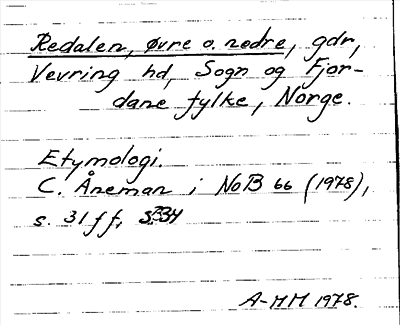 Redalen, øvre o. nedre, gdr,
Vevring hd, Sogn og Fjor-
dane fylke, Norge.
Etymologi.
C. Åneman i NoB 66 (1978),
s. 31 ff,
A-MM 1978.